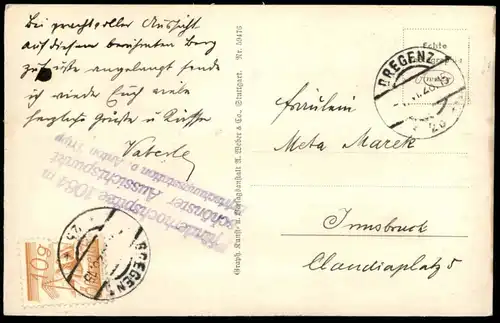 Bei prachtvoller Aussicht
auf diesem berühmten Berg
zu
angelangt sende
ich wieder Euch viele
herzliche Grüsse u Küsse
Vaterle
Pfänderhochspitze 1064 m
Schönster Aussichtspunkt
Erfrischungsstation
Graph. Kunst- u. Verlagsanstalt A. Weber & Co., Stuttgart. Nr. 59476
Echte
BREGENZ
Fräulein
Meta Marek
Innsbruck
Claudiaplatz 5
10g
BREGENZ